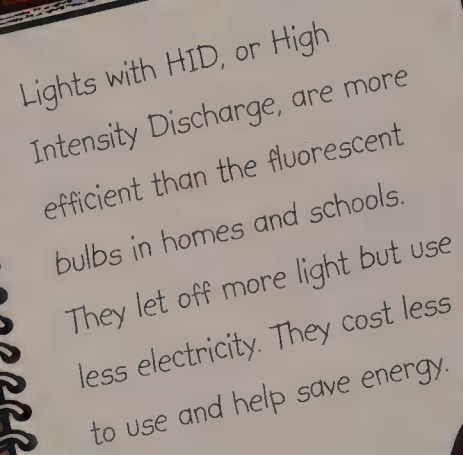 Lights with HID, or High
Intensity Discharge, are more
efficient than the fluorescent
bulbs in homes and schools.
They let off more light but use
less electricity. They cost less
to use and help save energy.